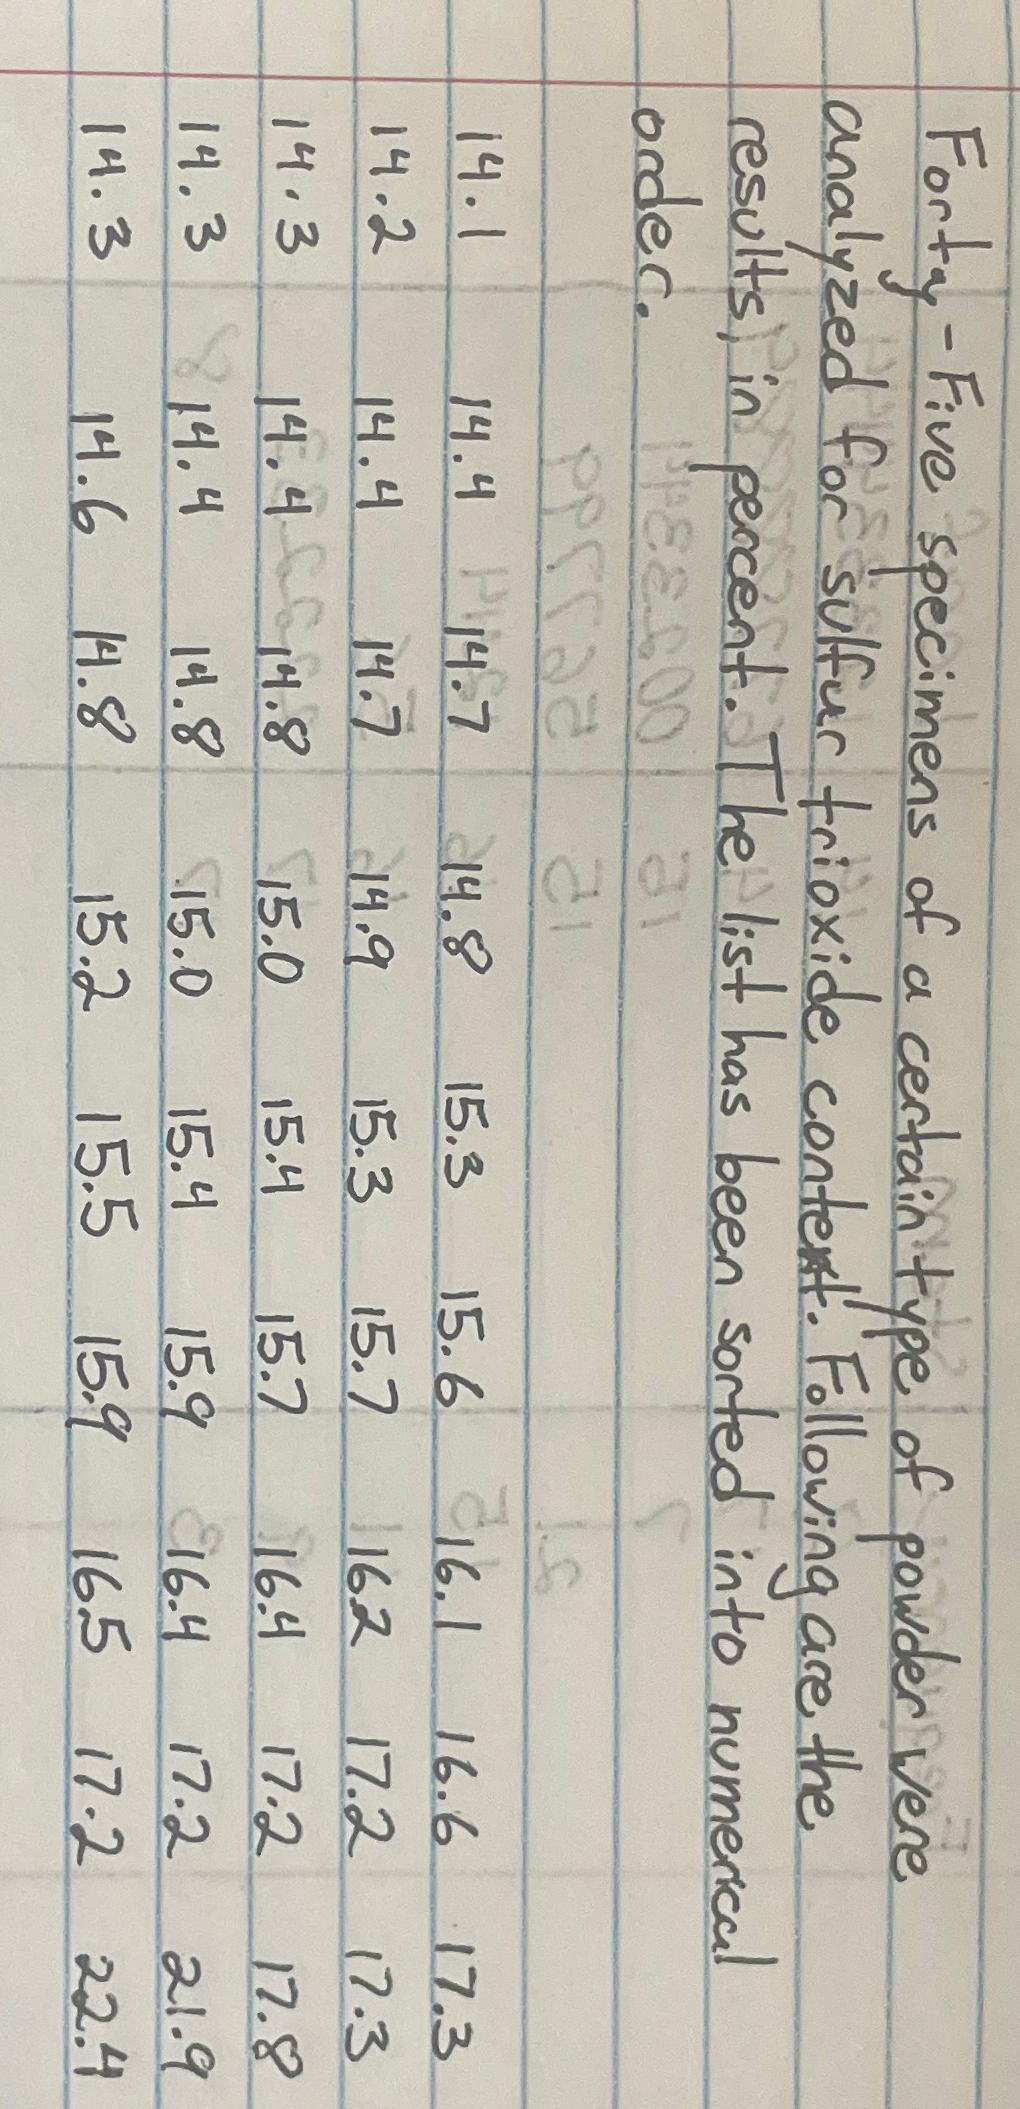 Forty-Five specimens of a certain type of powder were
analyzed for sulfur trioxide content. Following are the
results, in percent. The list has been sorted into numerical
order.
14.1 14.4 14.7 14.8 15.3 15.6 16.1 16.6 17.3
14.2 14.4 14.7 14.9 15.3 15.7 16.2 17.2 17.3
14.3 14.4 14.8 15.0 15.4 15.7 16.4 17.2 17.8
14.3 14.4 14.8 15.0 15.4 15.9 16.4 17.2 21.9
14.3 14.6 14.8 15.2 15.5 15.9 16.5 17.2 22.4